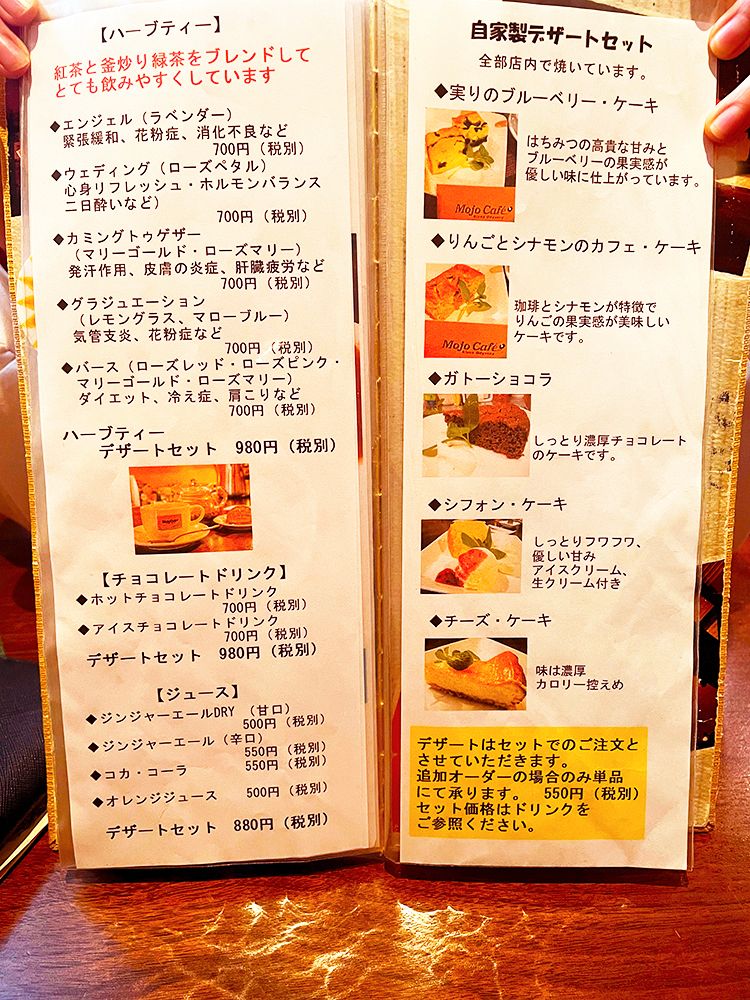 【ハーブティー】
紅茶と釜炒り緑茶をブレンドして
とても飲みやすくしています
◆エンジェル（ラベンダー）
緊張緩和、花粉症、消化不良など
700円（税別）
◆ウェディング（ローズペタル）
心身リフレッシュ・ホルモンバランス
二日酔いなど）
700円（税別）
◆カミングトゥゲザー
（マリーゴールド・ローズマリー）
発汗作用、皮膚の炎症、肝臓疲労など
700円（税別）
◆グラジュエーション
（レモングラス、マローブルー）
気管支炎、花粉症など
700円（税別）
◆バース（ローズレッド・ローズピンク・
マリーゴールド・ローズマリー）
ダイエット、冷え症、肩こりなど
700円（税別）
ハーブティー
デザートセット 980円（税別）
【チョコレートドリンク】
◆ホットチョコレートドリンク
700円（税別）
◆アイスチョコレートドリンク
700円（税別）
デザートセット 980円（税別）
【ジュース】
◆ジンジャーエールDRY（甘口）
500円（税別）
◆ジンジャーエール（辛口）
550円（税別）
◆コカ・コーラ 550円（税別）
◆オレンジジュース 500円（税別）
デザートセット 880円（税別）
自家製デザートセット
全部店内で焼いています。
◆実りのブルーベリー・ケーキ
はちみつの高貴な甘みと
ブルーベリーの果実感が
優しい味に仕上がっています。
Mojo Café
◆りんごとシナモンのカフェ・ケーキ
珈琲とシナモンが特徴で
りんごの果実感が美味しい
ケーキです。
Mojo Café
◆ガトーショコラ
しっとり濃厚チョコレート
のケーキです。
◆シフォン・ケーキ
しっとりフワフワ、
優しい甘み
アイスクリーム、
生クリーム付き
◆チーズ・ケーキ
味は濃厚
カロリー控えめ
デザートはセットでのご注文と
させていただきます。
追加オーダーの場合のみ単品
にて承ります。 550円（税別）
セット価格はドリンクを
ご参照ください。